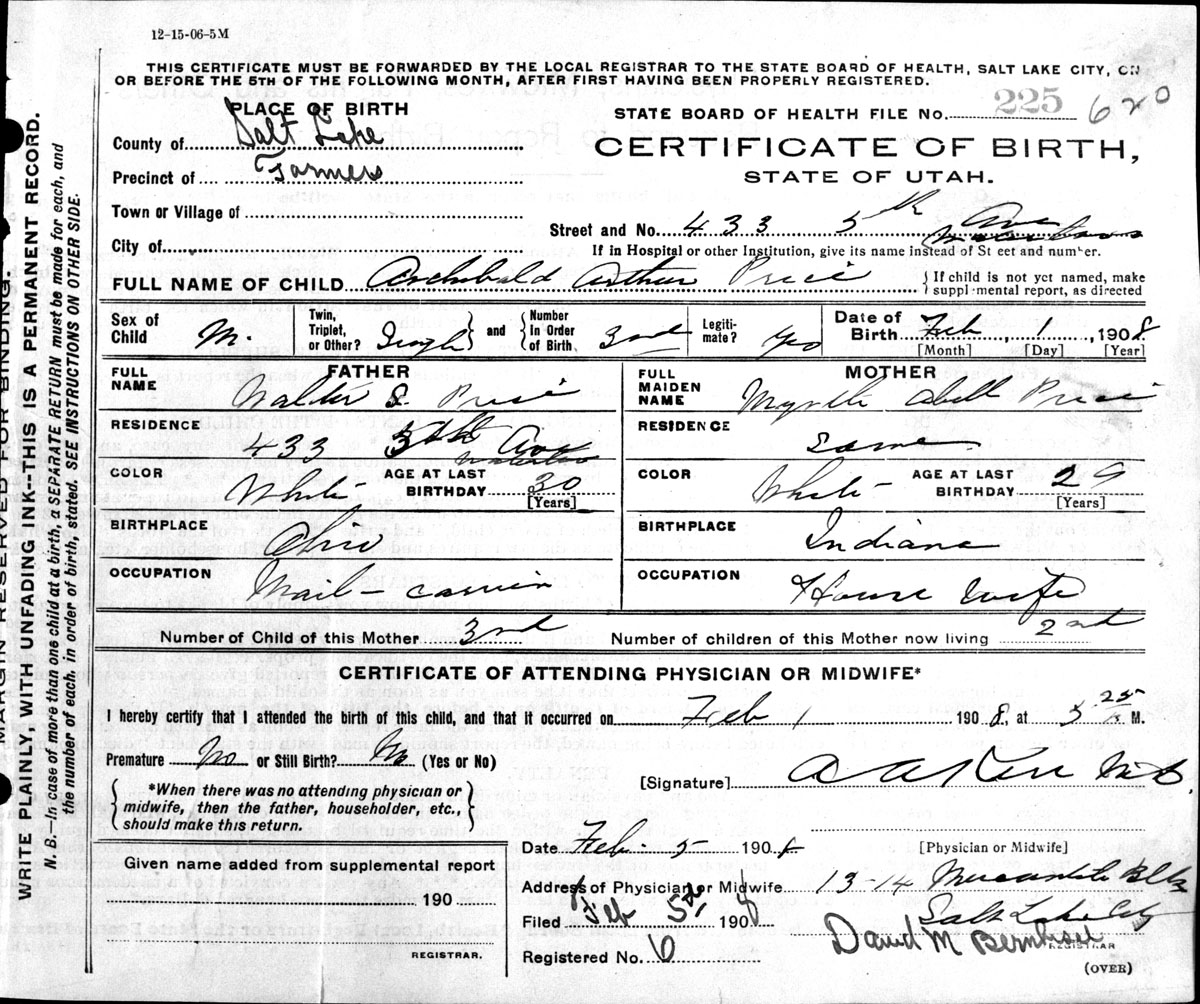 12-15-06-5M
THIS CERTIFICATE MUST BE FORWARDED BY THE LOCAL REGISTRAR TO THE STATE BOARD OF HEALTH, SALT LAKE CITY, ON
OR BEFORE THE 5TH OF THE FOLLOWING MONTH, AFTER FIRST HAVING BEEN PROPERLY REGISTERED.
PLACE OF BIRTH
STATE BOARD OF HEALTH FILE No. 225 620
County of Salt Lake
CERTIFICATE OF BIRTH,
Precinct of Farmers
STATE OF UTAH.
Town or Village of
Street and No. 433 5th Ave
City of
If in Hospital or other Institution, give its name instead of St eet and number.
FULL NAME OF CHILD Archibald Arthur Price
If child is not yet named, make
suppl mental report, as directed
Sex of Child M.
Twin, Triplet, or Other? Single
and Number In Order of Birth 3rd
Legitimate? Yes
Date of Birth Feb 1, 1908
[Month] [Day] [Year]
FATHER
FULL NAME Walter S. Price
RESIDENCE 433 5th Ave
COLOR White AGE AT LAST BIRTHDAY 30
[Years]
BIRTHPLACE Ohio
OCCUPATION Mail-carrier
MOTHER
FULL MAIDEN NAME Myrtle Abell Price
RESIDENCE same
COLOR White AGE AT LAST BIRTHDAY 29
[Years]
BIRTHPLACE Indiana
OCCUPATION House wife
Number of Child of this Mother 3rd Number of children of this Mother now living 2nd
CERTIFICATE OF ATTENDING PHYSICIAN OR MIDWIFE*
I hereby certify that I attended the birth of this child, and that it occurred on Feb 1 1908, at 5 25 M.
Premature No or Still Birth? No (Yes or No)
[Signature] M.D.
*When there was no attending physician or
midwife, then the father, householder, etc.,
should make this return.
Date Feb. 5 1908
[Physician or Midwife]
Given name added from supplemental report
190
REGISTRAR.
Address of Physician or Midwife 13-14 Mercantile Blk
Salt Lake City
Filed Feb 5th 1908
David M Bernhisel
REGISTRAR
Registered No. 6
(OVER)
MARGIN RESERVED FOR BINDING.
WRITE PLAINLY, WITH UNFADING INK--THIS IS A PERMANENT RECORD.
N. B.—In case of more than one child at a birth, a SEPARATE RETURN must be made for each, and
the number of each, in order of birth, stated. SEE INSTRUCTIONS ON OTHER SIDE.